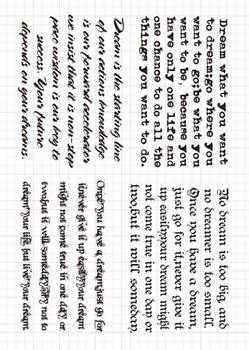 Dream what you want
to dream;go where you
want to go;be what you
want to be because you
have only one life and
one chance to do all the
things you want to do.
Dream is the standing line
of our actions knowledge
is our forward accelerator
we insist that it is non-stop
pace wisdom is our key to
success. Your future
depends on your dreams.
No dream is too big, and
no dreamer is too small.
Once you have a dream,
just go for it,never give it
up easily;your dream might
not come true in one day or
two,but it will someday.
Once you have a dream,just go for
it,never give it up easily;your dream
might not come true in one day or
two,but it will someday;try not to
dream your life, but live your dream